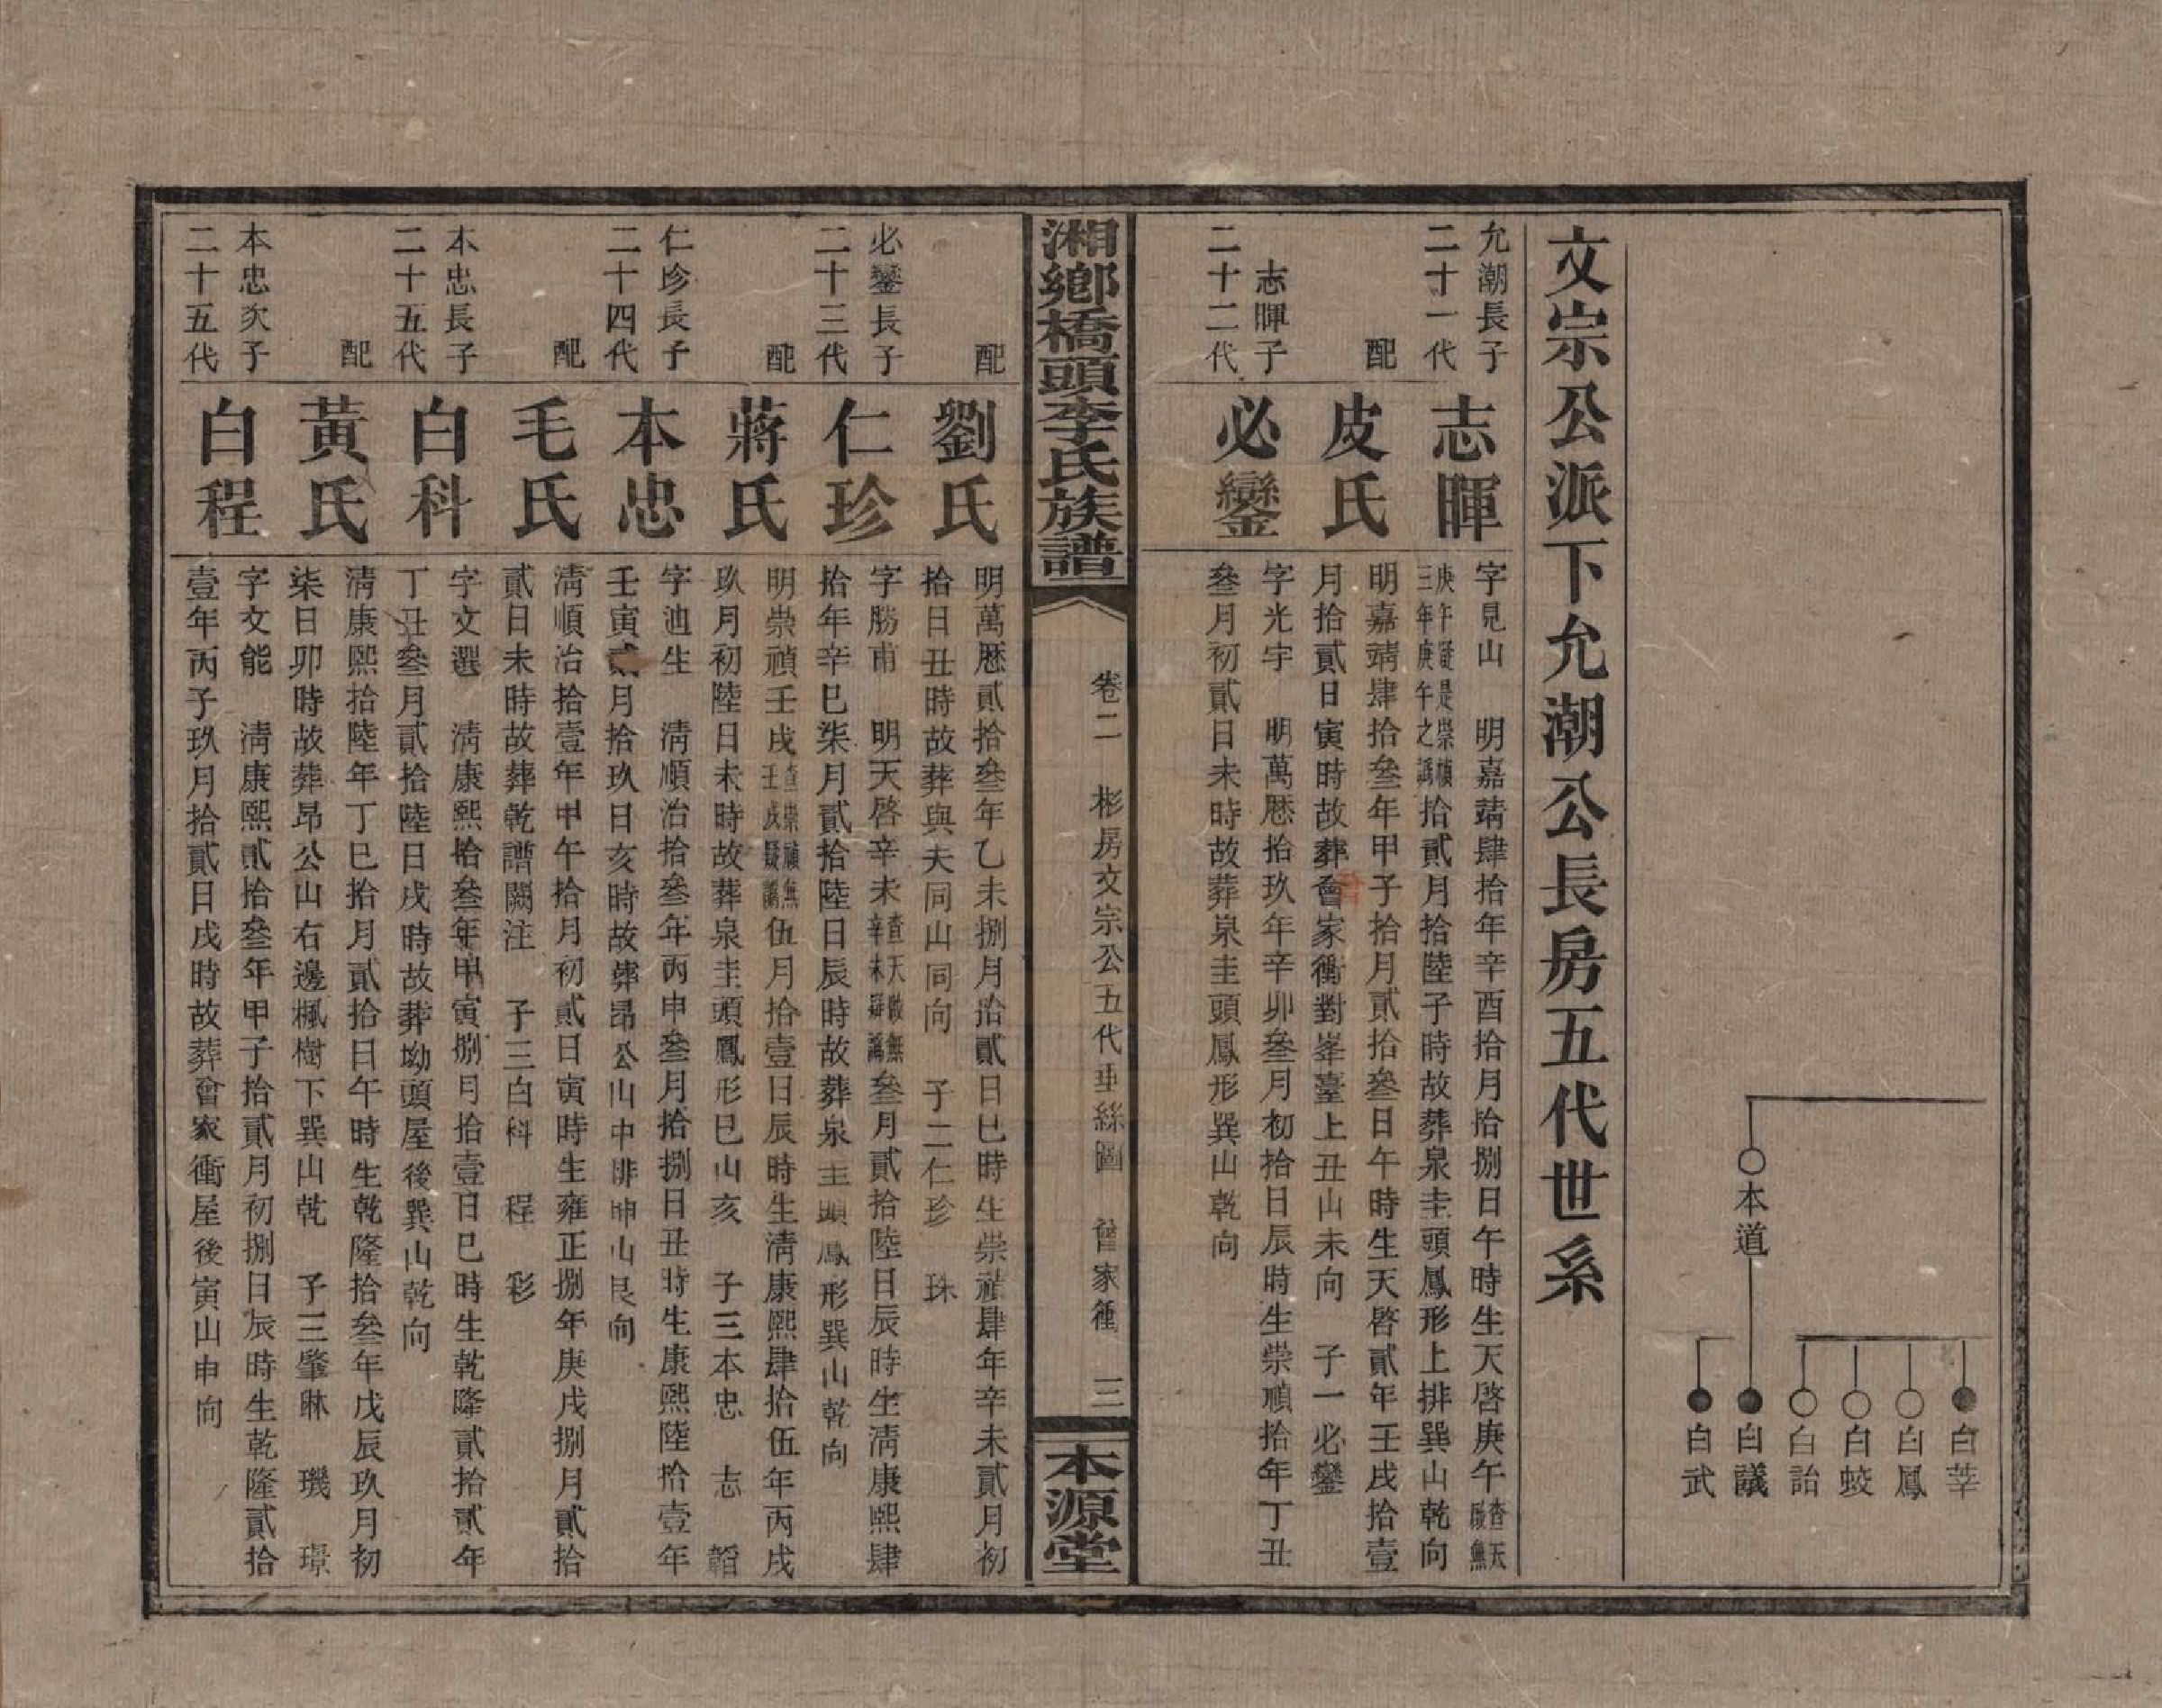 本道
白莘
白鳳
白蛟
白詒
白議
白武
文宗公派下允潮公長房五代世系
允潮長子
二十一代
志暉
字見山　明嘉靖肆拾年辛酉拾月拾捌日午時生天啓庚午查天啟無
庚午疑是崇禎三年庚午之譌拾貳月拾陸子時故葬泉圭頭鳳形上排巽山乾向
配
皮氏
明嘉靖肆拾叄年甲子拾月貳拾叄日午時生天啓貳年壬戌拾壹
月拾貳日寅時故葬會家衝對峯臺上丑山未向　子一必鑾
志暉子
二十二代
必鑾
字光宇　明萬厯拾玖年辛卯叄月初拾日辰時生崇禎拾年丁丑
叄月初貳日未時故葬泉圭頭鳳形巽山乾向
湘鄉橋頭李氏族譜
卷二　彬房文宗公五代垂絲圖　曾家衝　三
本源堂
配
劉氏
明萬厯貳拾叄年乙未捌月拾貳日巳時生崇禎肆年辛未貳月初
拾日丑時故葬與夫同山同向　子二仁珍　珠
必鑾長子
二十三代
仁珍
字勝甫　明天啓辛未查天啟無辛未疑譌叄月貳拾陸日辰時生淸康熙肆
拾年辛巳柒月貳拾陸日辰時故葬泉圭頭鳳形巽山乾向
配
蔣氏
明崇禎壬戌查崇禎無壬戌疑譌伍月拾壹日辰時生淸康熙肆拾伍年丙戌
玖月初陸日未時故葬泉圭頭鳳形巳山亥　子三本忠　志　韜
仁珍長子
二十四代
本忠
字迪生　淸順治拾叄年丙申叄月拾捌日丑時生康熙陸拾壹年
壬寅貳月拾玖日亥時故葬昂公山中排坤山艮向
配
毛氏
淸順治拾壹年甲午拾月初貳日寅時生雍正捌年庚戌捌月貳拾
貳日未時故葬乾譜闕注　子三白科　程　彩
本忠長子
二十五代
白科
字文選　淸康熙拾叄年甲寅捌月拾壹日巳時生乾隆貳拾貳年
丁丑叄月貳拾陸日戌時故葬坳頭屋後巽山乾向
配
黃氏
淸康熙拾陸年丁巳拾月貳拾日午時生乾隆拾叄年戊辰玖月初
柒日卯時故葬昂公山右邊楓樹下巽山乾　子三肇琳　璣　璟
本忠次子
二十五代
白程
字文能　淸康熙貳拾叄年甲子拾貳月初捌日辰時生乾隆貳拾
壹年丙子玖月拾貳日戌時故葬會家衝屋後寅山申向